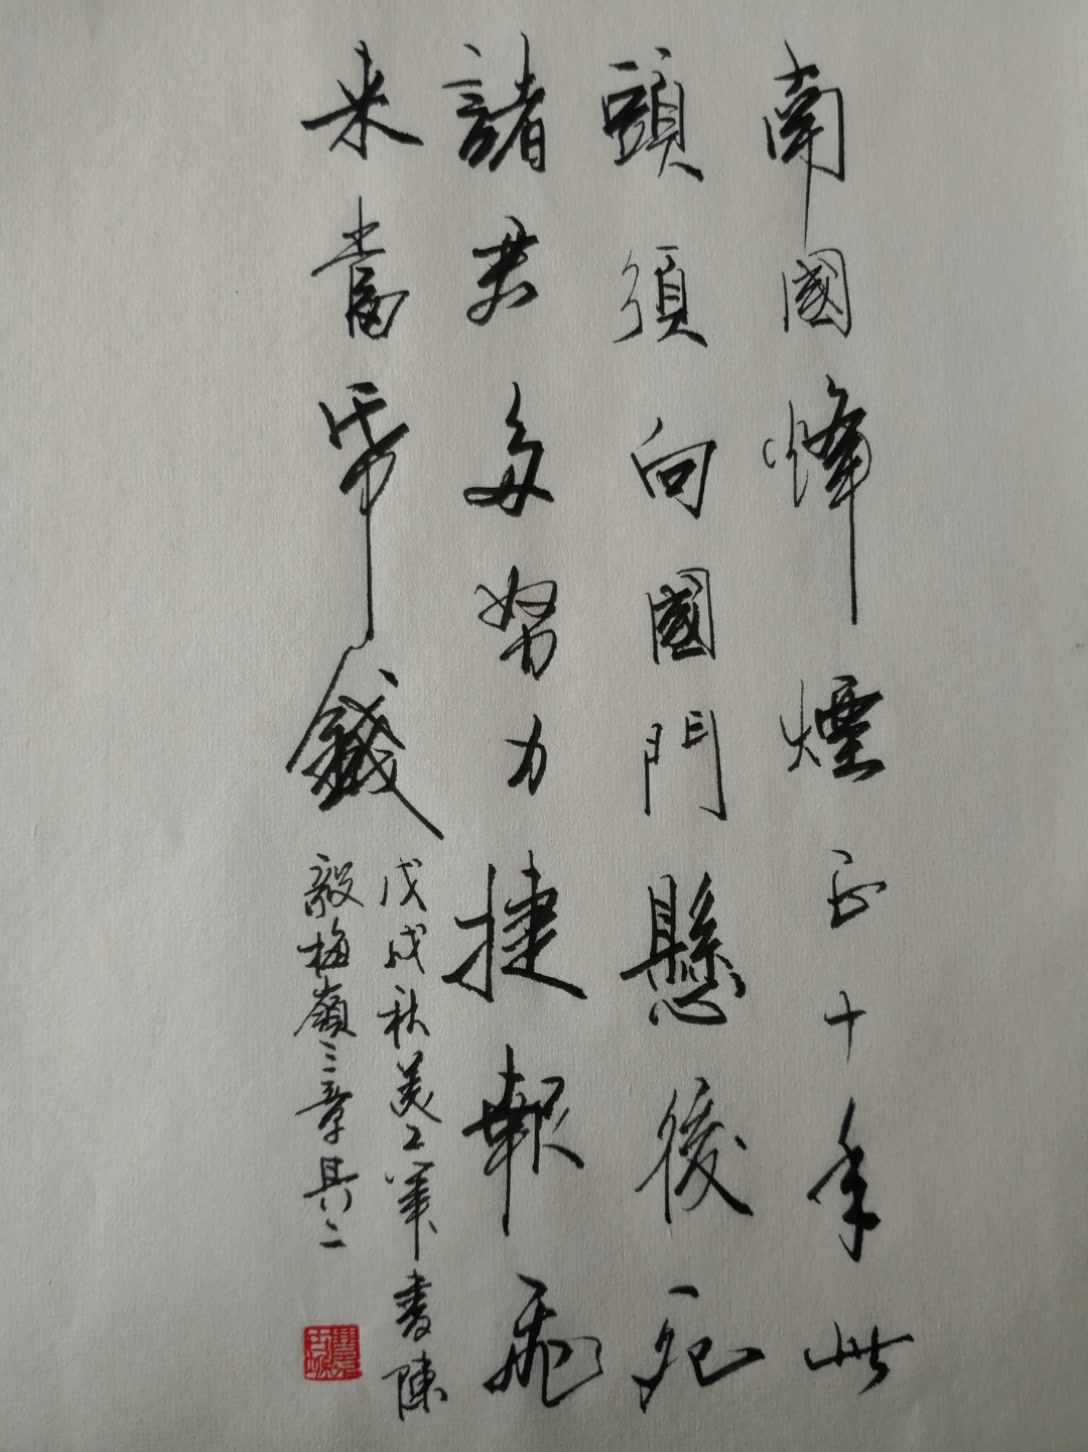 南國烽煙正十年此
頭須向國門懸後死
諸君多努力捷報飛
来當帋錢
戊戌秋美工筆書陳
毅梅嶺三章其二